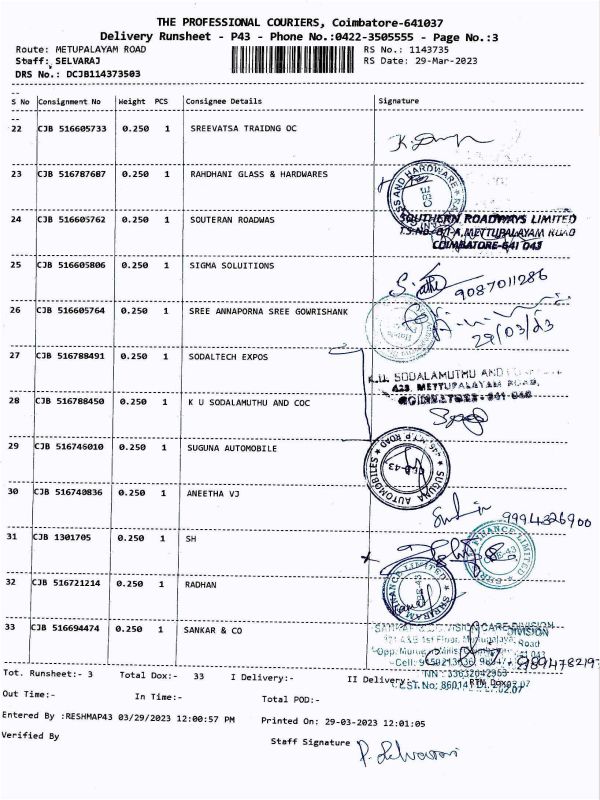 THE PROFESSIONAL COURIERS, Coimbatore-641037
Delivery Runsheet - P43 - Phone No.:0422-3505555 - Page No.:3
Route: METUPALAYAM ROAD
RS No.: 1143735
Staff: SELVARAJ
RS Date: 29-Mar-2023
DRS No.: DCJB114373503
S No Consignment No Weight PCS Consignee Details Signature
22 CJB 516605733 0.250 1 SREEVATSA TRAIDNG OC
23 CJB 516787687 0.250 1 RAHDHANI GLASS & HARDWARES
24 CJB 516605762 0.250 1 SOUTERAN ROADWAS
SOUTHERN ROADWAYS LIMITED
METTUPALAYAM ROAD
COIMBATORE-641 043
25 CJB 516605806 0.250 1 SIGMA SOLUITIONS
9087011286
26 CJB 516605764 0.250 1 SREE ANNAPORNA SREE GOWRISHANK
29/03/23
27 CJB 516788491 0.250 1 SODALTECH EXPOS
K.U. SODALAMUTHU AND
423, METTUPALAYAM ROAD,
28 CJB 516788450 0.250 1 K U SODALAMUTHU AND COC
29 CJB 516746010 0.250 1 SUGUNA AUTOMOBILE
SUGUNA AUTOMOBILES
30 CJB 516740836 0.250 1 ANEETHA VJ
9994326900
31 CJB 1301705 0.250 1 SH
FINANCE LIMITED
32 CJB 516721214 0.250 1 RADHAN
SHRIRAM FINANCE LIMITED
33 CJB 516694474 0.250 1 SANKAR & CO
VISION CARE DIVISION
Tot. Runsheet:- 3 Total Dox:- 33 I Delivery:- II Delivery:-
Out Time:- In Time:- Total POD:-
Entered By :RESHMAP43 03/29/2023 12:00:57 PM Printed On: 29-03-2023 12:01:05
Verified By
Staff Signature